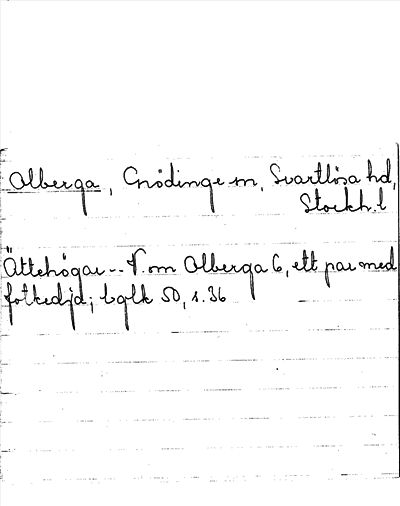 Alberga, Grödinge sn, Svartlösa hd,
Stockh. l
Ättehögar -- V. om Alberga G, ett par med
fotkedja;
50, s. 36